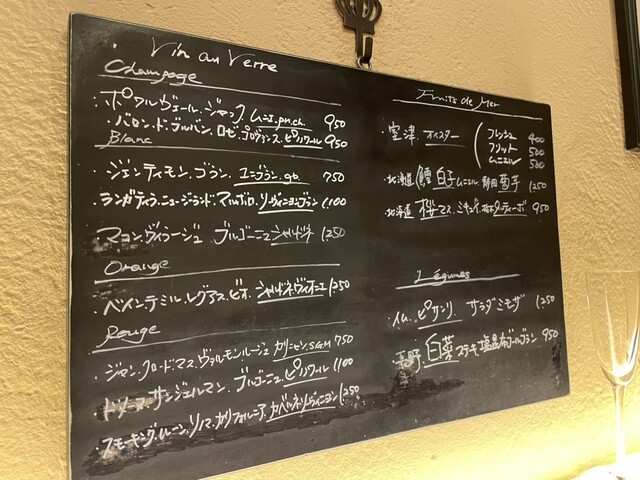 Vin au Verre
Champagne
・ポワルヴェール・ジャック ムニエ.p.n.ch. 950
・バロン.ド.ブルバン.ロゼ.プロヴァンス.ピノワール 950
Blanc
・ジェンティモン.ブラン.ユニブラン.gb. 750
ランガティラ.ニュージーランド.マルボロ.ソーヴィニヨンブラン 1,100
マコン.ヴィラージュ ブルゴーニュ シャルドネ 1,250
Orange
・ベイン.テミル.レグアス.ビオ.シャルドネ.ヴィオニエ 1,250
Rouge
・ジャン.クロード.マス.ヴァルモンルージュ カリニャン.S.G.M 750
サンジェルマン.ブルゴーニュ.ピノワール 1,100
・スモーキング.ルーン.ソノマ.カリフォルニア.カベルネソーヴィニヨン 1,250
Fruits de Mer
・室津.オイスター
フレッシュ 400
フリット 500
ムニエル 500
・北海道.鱈 白子 ムニエル 静岡 菊芋 1,250
・北海道 桜マス.ミキュイ 950
Légumes
・イム.ピサンリ サラダ ミモザ 1,250
・長野.白菜 ステーキ 塩昆布 950